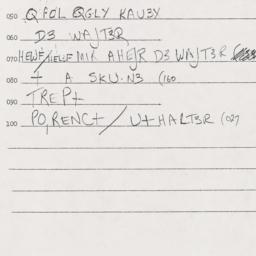 050 QFOL QGLY KAUBY
060 D3 WAJT3R
070 HEWF/ MIA AHEJR D3 WAJT3R
080 + A SKU-N3 (160
090 TREP+
100 PO,RENC+/ U+HALT3R (027